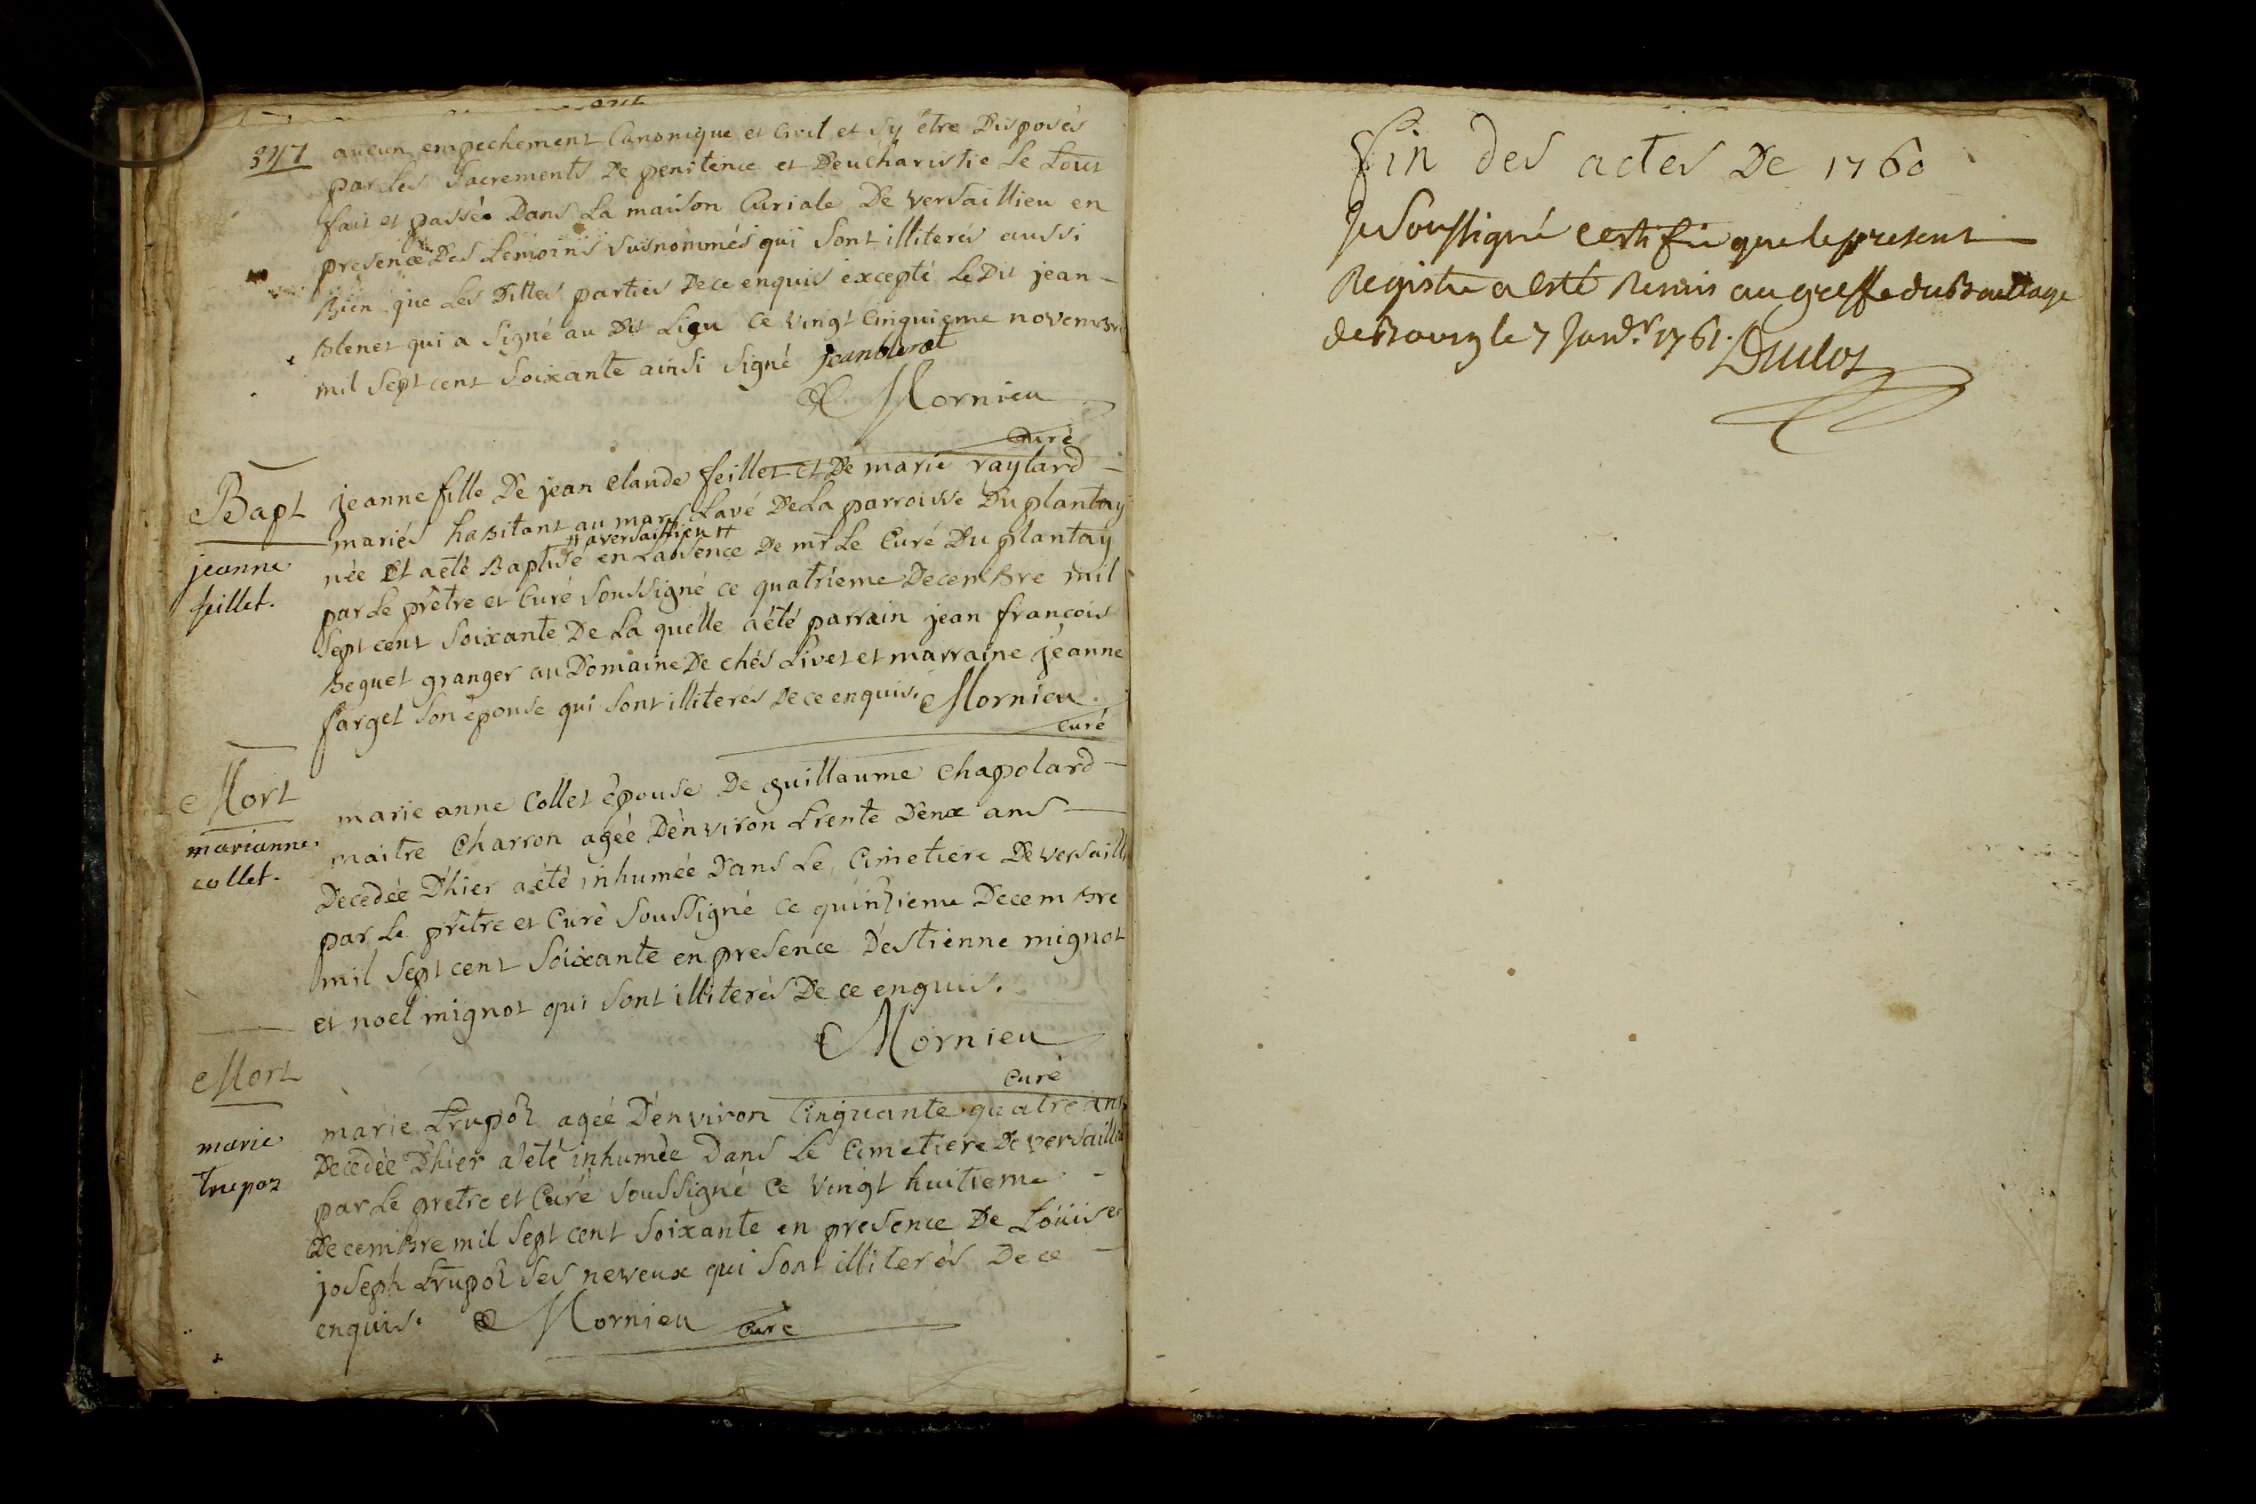 347
aucun empechement Canonique et Civil et sy être Disposés
par Les Sacrements De penitence et Deucharistie Le tout
fait et passée Dans La maison Curiale De versaillieu en
presence Des temoins susnommés qui sont illiterés aussi
Bien que Les Dittes parties De ce enquis excepté Le Dit jean -
Blenet qui a signé au Dit Lieu ce vingt cinquieme novembre
mil sept cent soixante ainsi signé jean blenet
Mornieu
curé
Bapt
jeanne
feillet.
jeanne fille De jean claude feillet et De marie raylard -
mariés habitant au mars Lavé De La parroisse Du plantay
a versaillieu
née Et a eté Baptisé en Labsence De mr Le Curé Du plantay
par Le prêtre et Curé soussigné ce quatrieme Decembre mil
sept cent soixante De La quelle a été parrain jean françois
Beguet granger au Domaine De chés Livet et marraine jeanne
farget son épouse qui sont illiterés De ce enquis. Mornieu.
curé
Mort
marianne
collet.
marie anne Collet épouse De guillaume Chapolard -
maitre Charron agée Dénviron trente Deux ans
Decedée D'hier a été inhumée Dans Le Cimetiere De versaill
par Le prêtre et Curé soussigné ce quinzieme Decembre
mil sept cent soixante en presence D'estienne mignot
et noel mignot qui sont illiterés De ce enquis.
Mornieu
curé
Mort
marie
trupoz
marie trupoz agée D'environ Cinquante quatre ans
Decedée D'hier a été inhumée Dans Le Cimetiere De versaillieu
par Le pretre et Curé soussigné Ce vingt huitieme -
Decembre mil sept cent soixante en presence De Loüis et
joseph trupoz ses neveux qui sont illiterés De ce -
enquis. Mornieu curé
fin des actes De 1760
Je Soussigné certifie que le present
Registre a esté Remis au greffe du Bailliage
de Bourg le 7 Janv.r 1761.